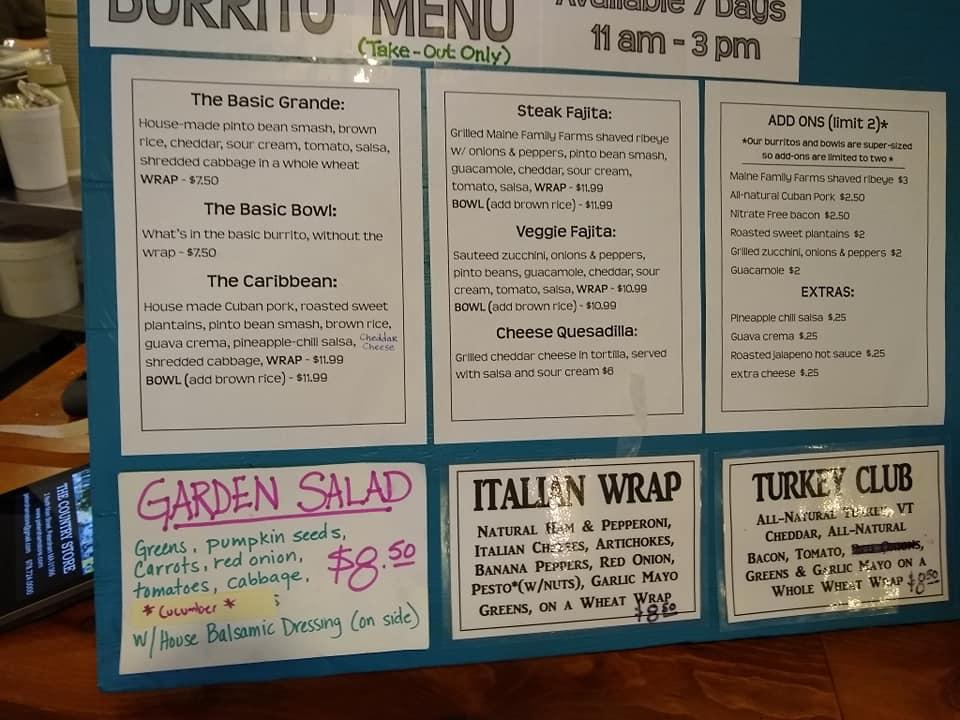 BURRITO MENU
(Take-Out Only)
Available 7 Days
11 am - 3 pm
The Basic Grande:
House-made pinto bean smash, brown
rice, cheddar, sour cream, tomato, salsa,
shredded cabbage in a whole wheat
WRAP - $7.50
The Basic Bowl:
What's in the basic burrito, without the
wrap - $7.50
The Caribbean:
House made Cuban pork, roasted sweet
plantains, pinto bean smash, brown rice,
guava crema, pineapple-chili salsa, Cheddar Cheese
shredded cabbage, WRAP - $11.99
BOWL (add brown rice) - $11.99
Steak Fajita:
Grilled Maine Family Farms shaved ribeye
w/ onions & peppers, pinto bean smash,
guacamole, cheddar, sour cream,
tomato, salsa, WRAP - $11.99
BOWL (add brown rice) - $11.99
Veggie Fajita:
Sauteed zucchini, onions & peppers,
pinto beans, guacamole, cheddar, sour
cream, tomato, salsa, WRAP - $10.99
BOWL (add brown rice) - $10.99
Cheese Quesadilla:
Grilled cheddar cheese in tortilla, served
with salsa and sour cream $6
ADD ONS (limit 2)*
*Our burritos and bowls are super-sized
so add-ons are limited to two *
Maine Family Farms shaved ribeye $3
All-natural Cuban Pork $2.50
Nitrate Free bacon $2.50
Roasted sweet plantains $2
Grilled zucchini, onions & peppers $2
Guacamole $2
EXTRAS:
Pineapple chili salsa $.25
Guava crema $.25
Roasted jalapeno hot sauce $.25
extra cheese $.25
GARDEN SALAD
Greens, pumpkin seeds,
Carrots, red onion,
tomatoes, cabbage,
* Cucumber *
$8.50
w/House Balsamic Dressing (on side)
ITALIAN WRAP
NATURAL HAM & PEPPERONI,
ITALIAN CHEESES, ARTICHOKES,
BANANA PEPPERS, RED ONION,
PESTO*(W/NUTS), GARLIC MAYO
GREENS, ON A WHEAT WRAP
$8.50
TURKEY CLUB
ALL-NATURAL TURKEY, VT
CHEDDAR, ALL-NATURAL
BACON, TOMATO,
GREENS & GARLIC MAYO ON A
WHOLE WHEAT WRAP $8.50
THE COUNTRY STORE